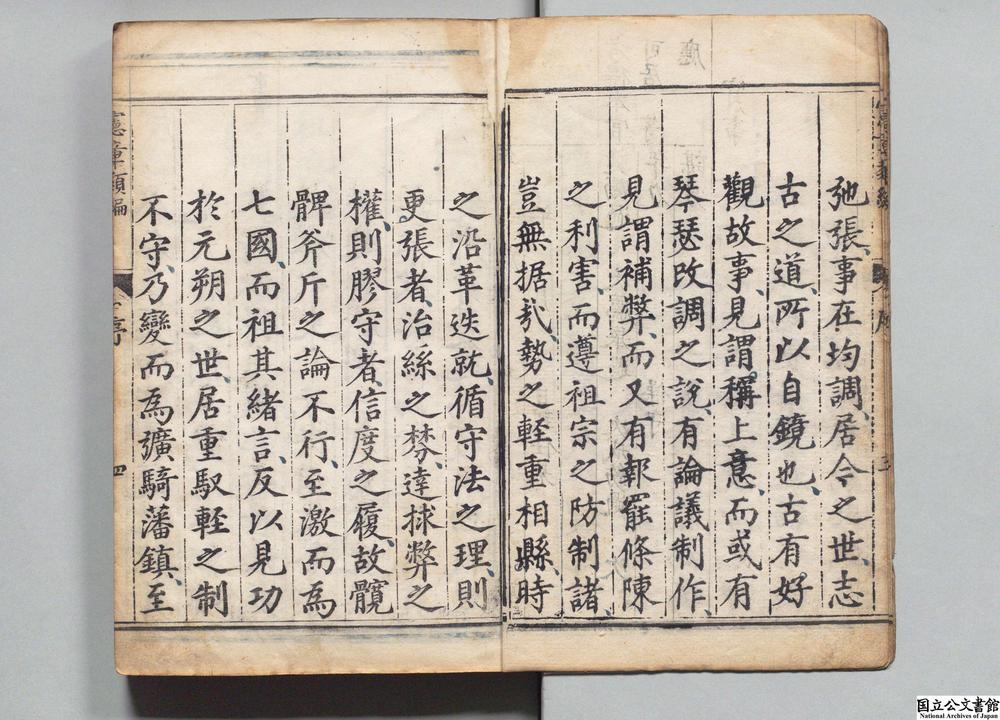 弛張、事在均調、居今之世、志
古之道、所以自鏡也古有好
觀故事、見謂稱上意、而或有
琴瑟改調之說、有論議制作、
見謂補弊、而又有報罷條陳
之利害、而遵祖宗之防制、諸
豈無据哉、勢之輊重相縣、時
之沿革迭就、循守法之理、則
更張者、治絲之棼、達捄弊之
權、則膠守者、信度之履、故髖
髀斧斤之論不行、至激而為
七國、而祖其緒言、反以見功
於元朔之世居重馭輊之制
不守、乃變而為彍騎藩鎮、至
憲章類編
序
四
三
国立公文書館
National Archives of Japan